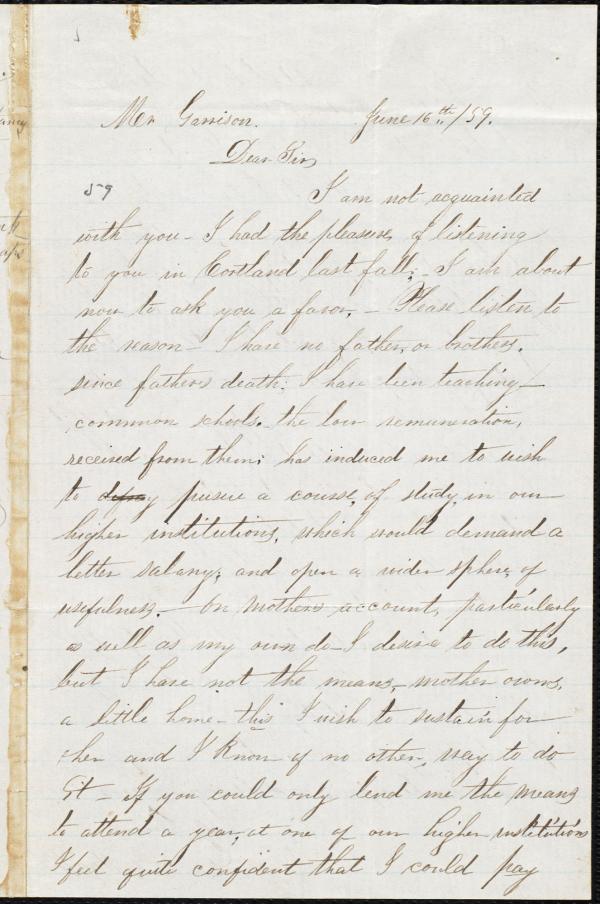 Mr Garrison. June 16th/59.
Dear Sir,
59
I am not acquainted
with you - I had the pleasure, of listening
to you in Cortland last fall; - I am about
now to ask you a favor, - Please listen to
the reason - I have no father, or brothers.
since fathers death; I have been teaching -
common schools. the low remuneration,
received from them; has induced me to wish
to defray pursue a course, of study, in our
higher institutions, which would demand a
better salary; and open a wider sphere, of
usefulness. - On Mothers account, particularly
as well as my own do I desire to do this,
but I have not the means, mother owns,
a little home - this I wish to sustain for
her and I know of no other, way to do
it - If you could only lend me the means
to attend a year, at one of our higher institutions
I feel quite confident that I could pay